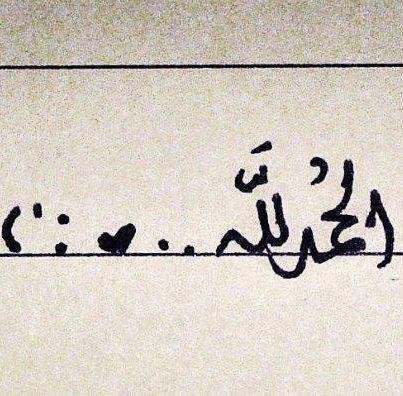 الحمدُ للَّه .. ♥ :'(